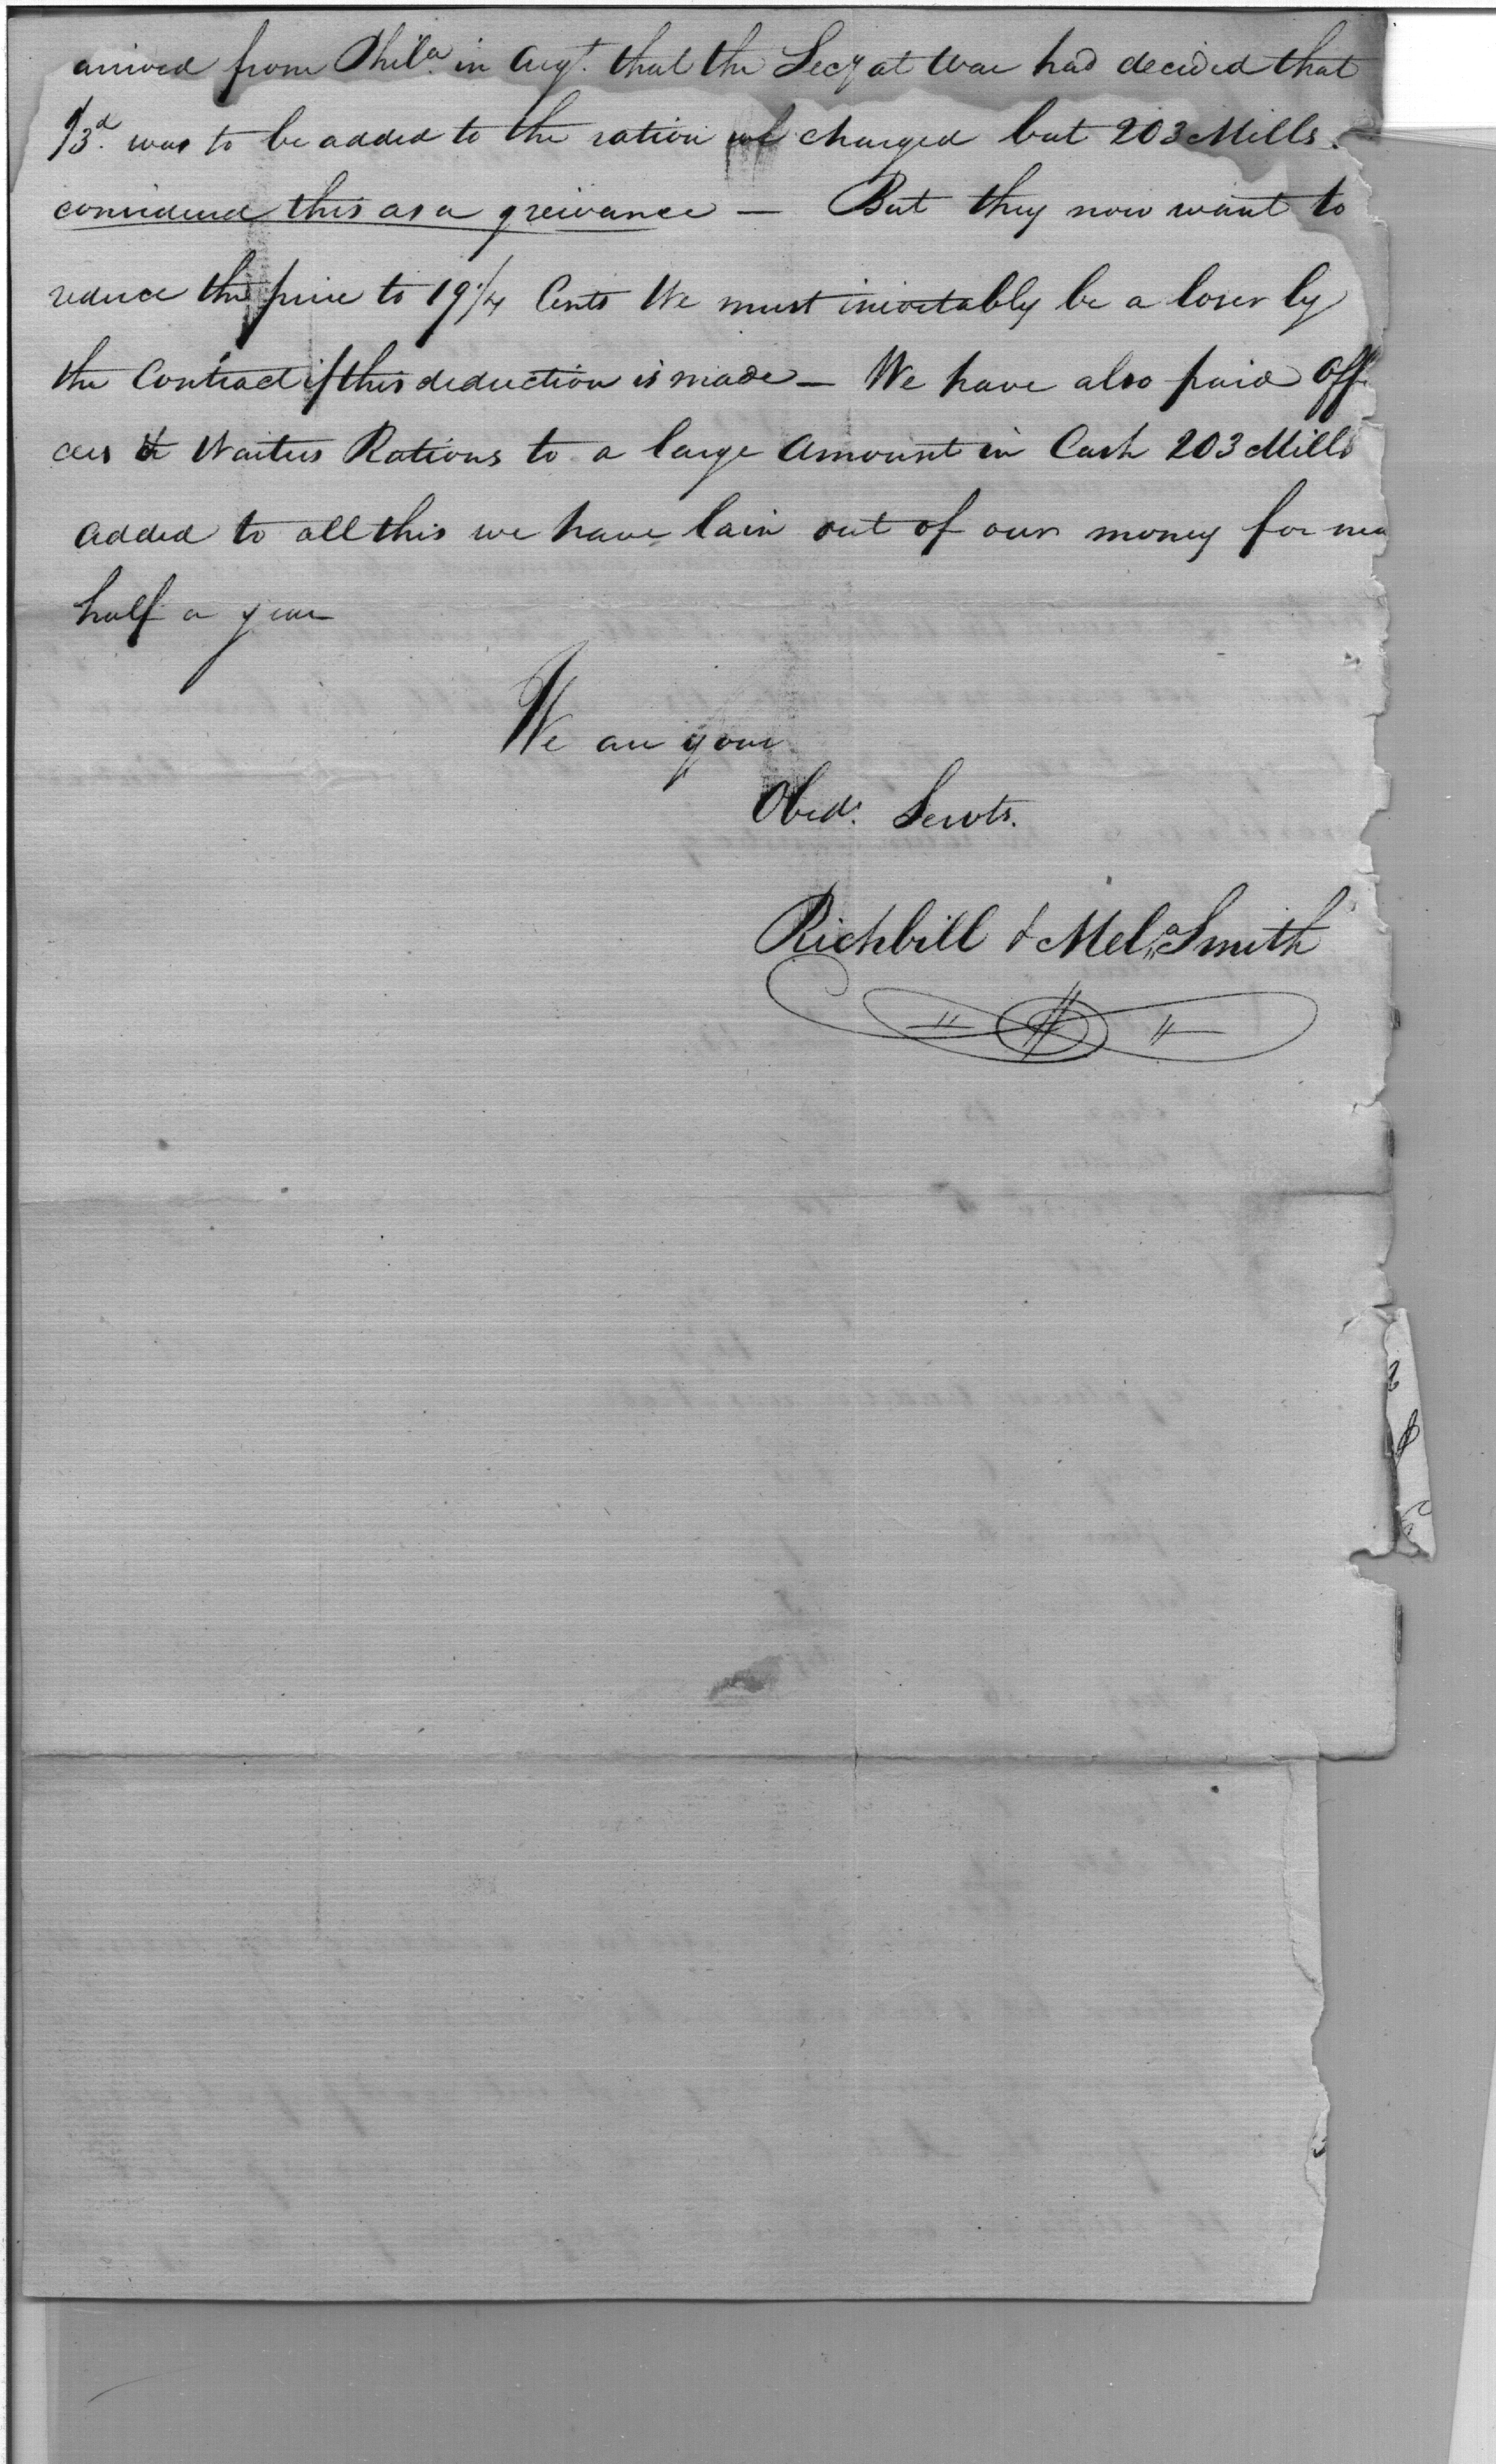 arrived from Phila. in Augt. that the Secy at War had decided that
1/3d. was to be added to the ration we charged but 203 Mills.
considered this as a greivance — But they now want to
reduce the price to 19 1/4 Cents We must inevitably be a loser by
the Contract if this deduction is made — We have also paid Offi
cers & Waiters Rations to a large Amount in Cash 203 Mills
added to all this we have lain out of our money for nea
half a year
We are your
Obedt. Servts.
Richbill & Mela Smith